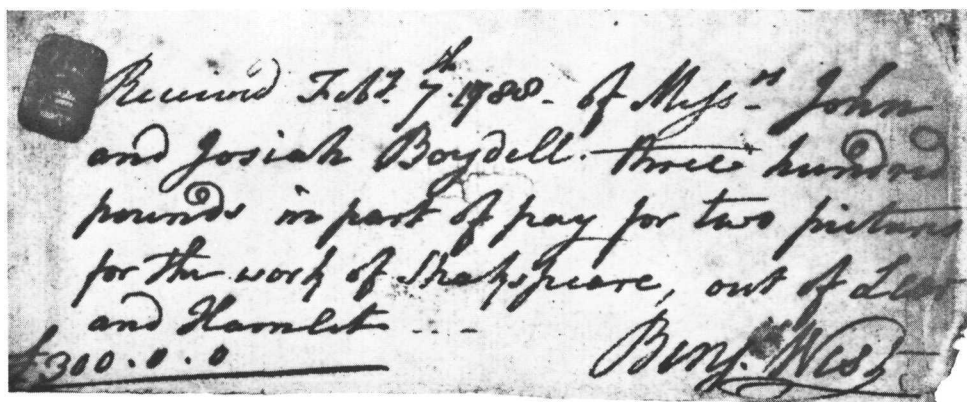 Received Feby. 7th. 1788 - of Messrs John
and Josiah Boydell. three hundred
pounds in part of pay for two pictures
for the work of Shakspeare, out of Lear
and Hamlet - - -
£300.0.0 Benj. West